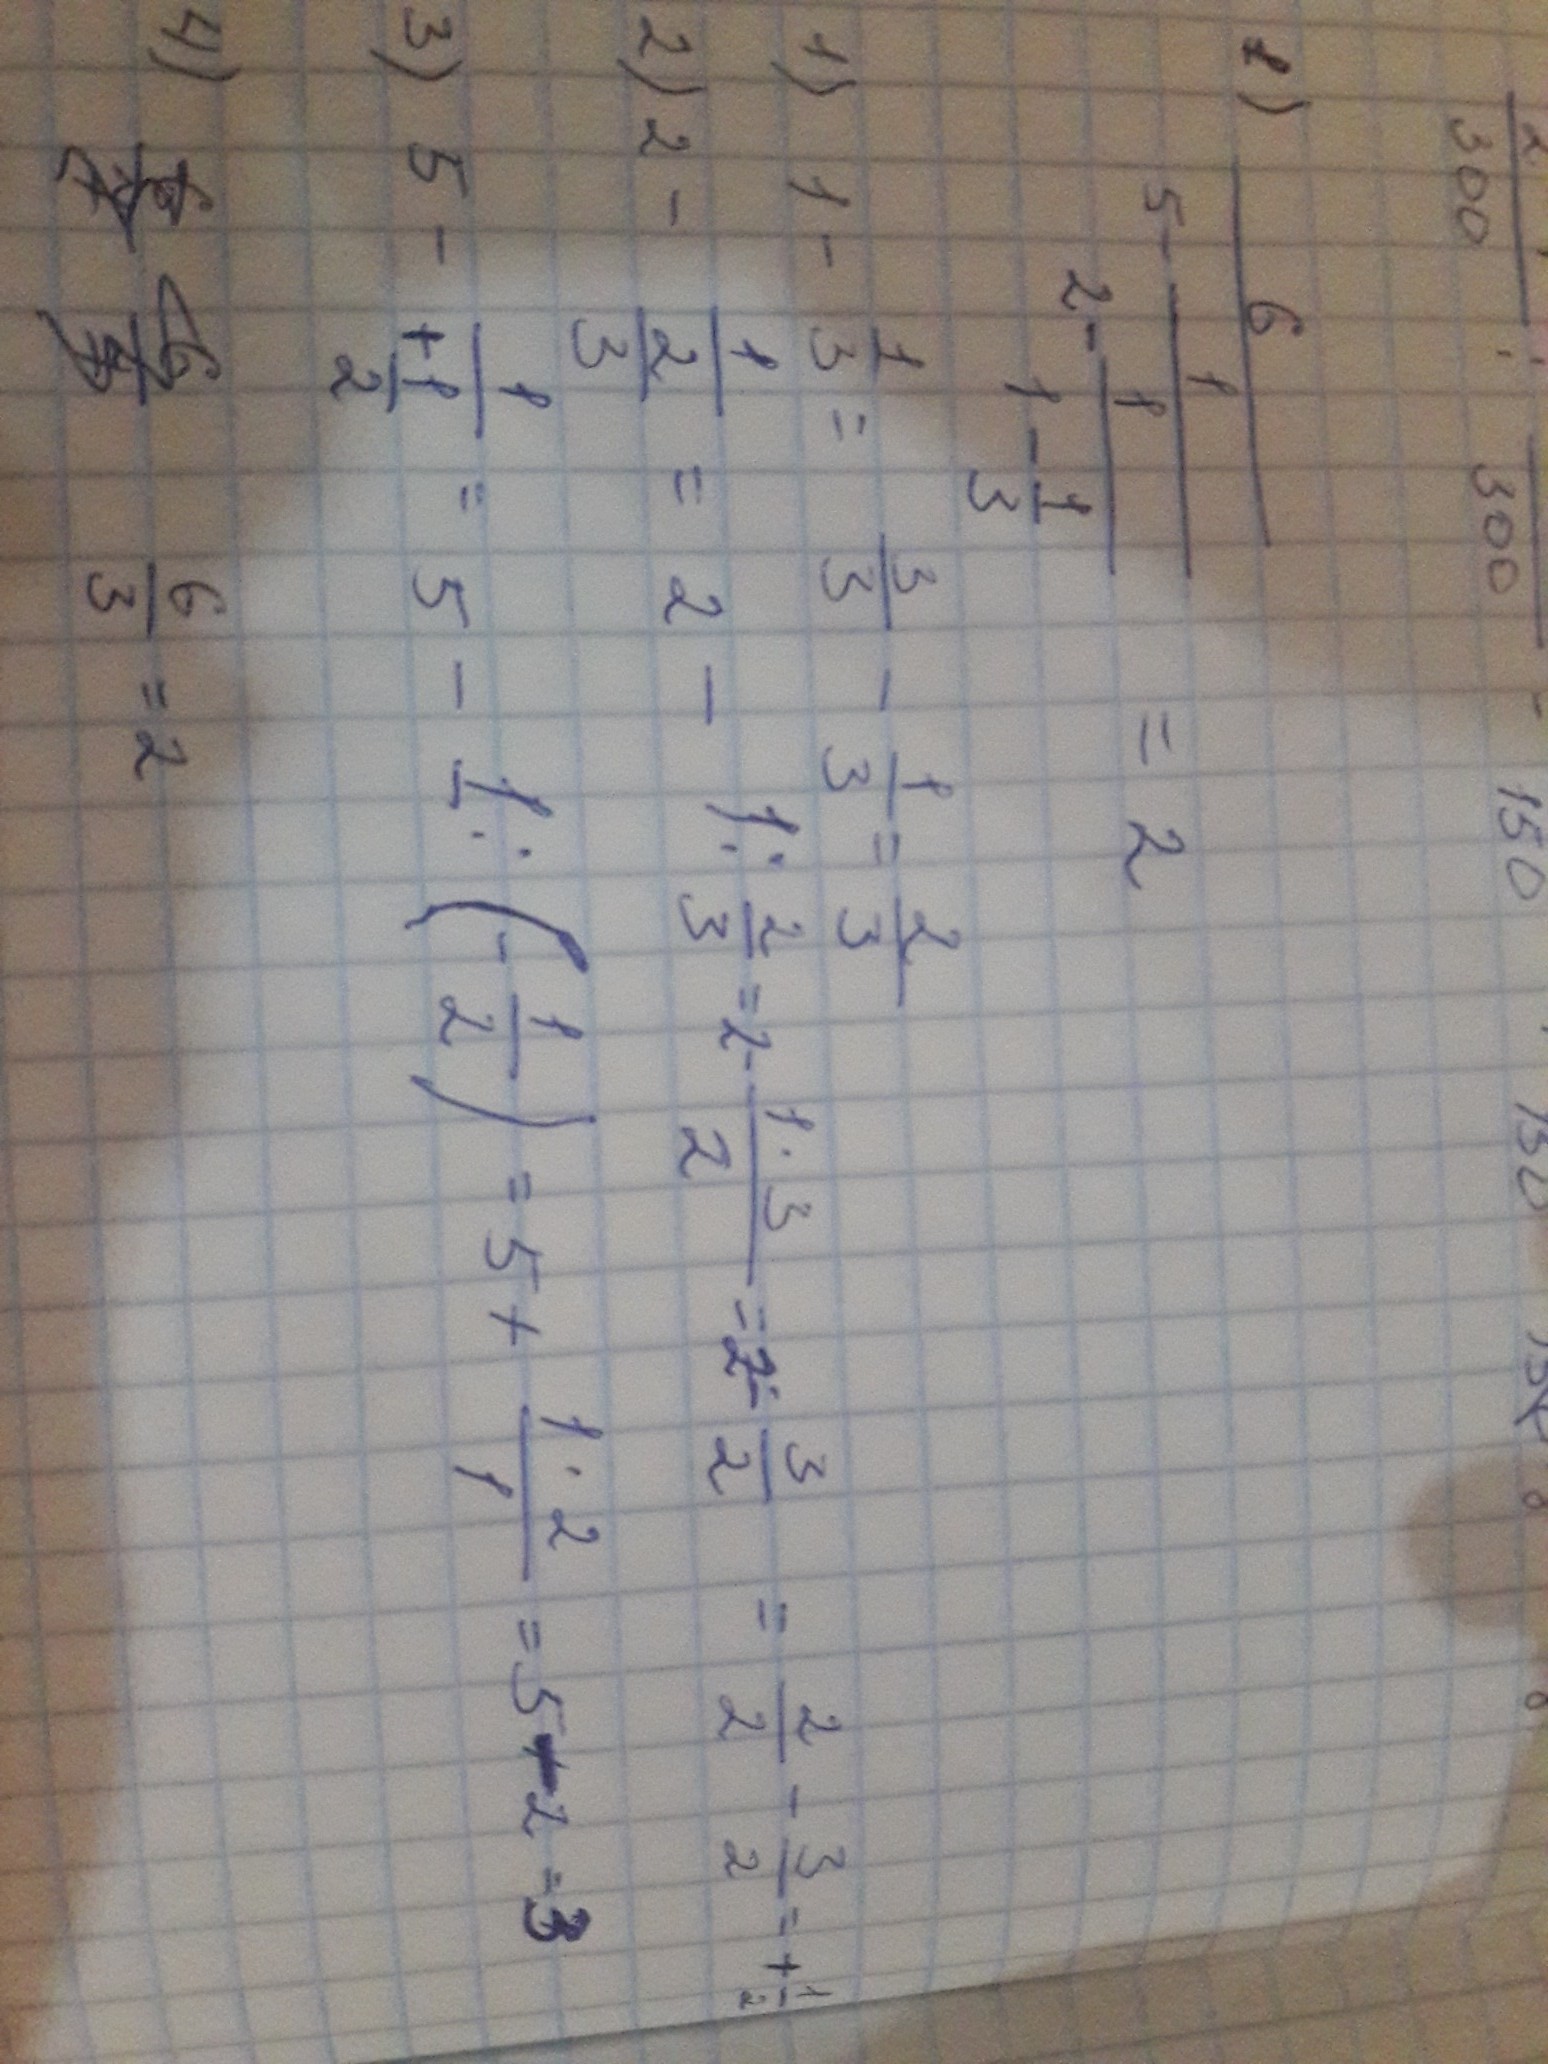 2/300 : /300 - 150
e) 6/(5 - 1/(2 - 1/(1 - 1/3))) = 2
1) 1 - 1/3 = 3/3 - 1/3 = 2/3
2) 2 - 1/(2/3) = 2 - 1 : 2/3 = 2 - 1·3/2 = 2 - 3/2 = 2/2 - 3/2 = + 1/2
3) 5 - 1/(+1/2) = 5 - 1 : (-1/2) = 5 + 1·2/1 = 5 - 2 = 3
4) 6/3 = 2